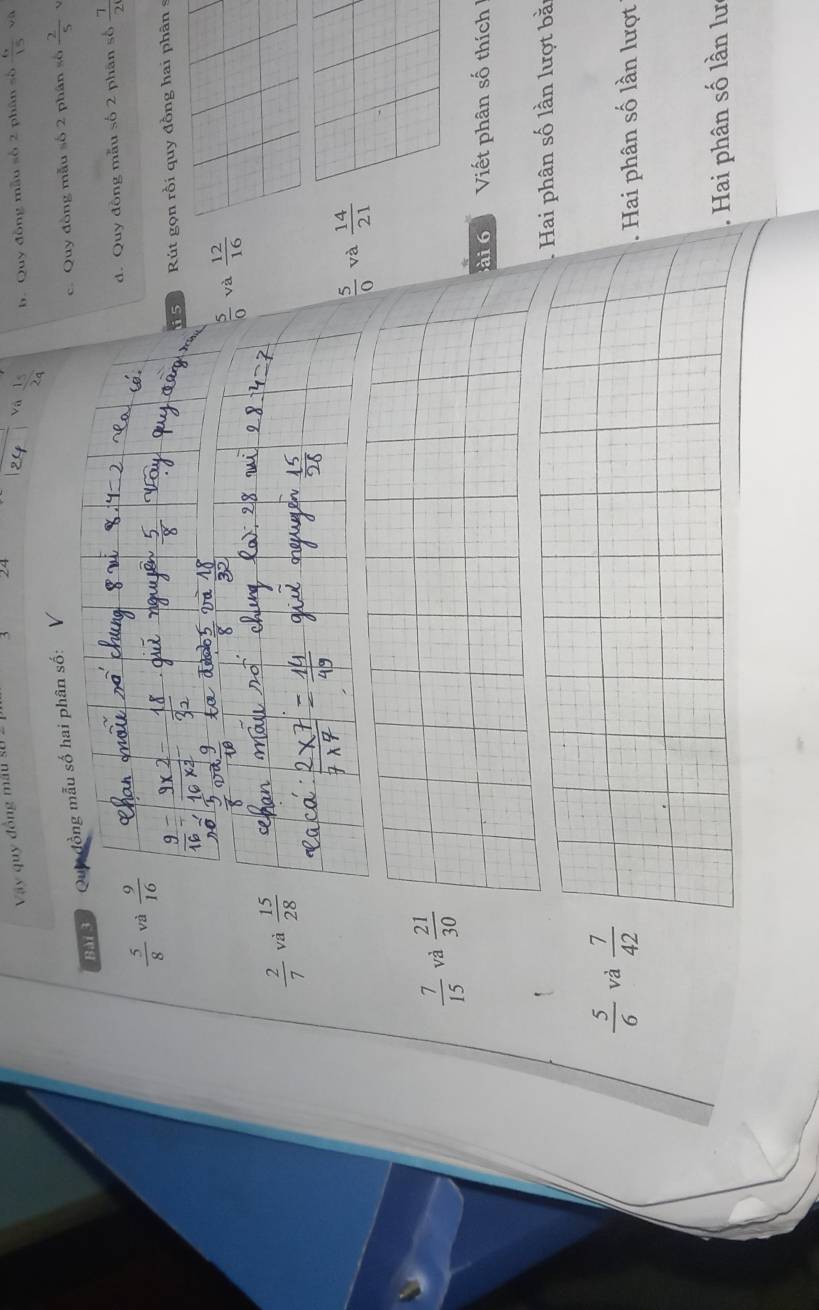 Vậy quy đồng mẫu số 2
3 24
24 và 15/24
Bài 3 Quy đồng mẫu số hai phân số: V
5/8 và 9/16
chọn mẫu số chung 8 vì 8:4=2 ta có:
9/16 = 9×2/16×2 = 18/32 . giữ nguyên 5/8 . Vậy quy đồng mẫu
số 5/8 và 9/16 ta được 5/8 và 18/32
2/7 và 15/28
chọn mẫu số chung là: 28 vì 28:4=7
ta có: 2×7/7×7 = 14/49 , giữ nguyên 15/28
7/15 và 21/30
5/6 và 7/42
b. Quy đồng mẫu số 2 phân số 6/15 và
c. Quy đồng mẫu số 2 phân số 2/5
d. Quy đồng mẫu số 2 phân số 7/2
i 5 Rút gọn rồi quy đồng hai phân s
5/0 và 12/16
5/0 và 14/21
ài 6 Viết phân số thích
. Hai phân số lần lượt bằ
. Hai phân số lần lượt
. Hai phân số lần lư